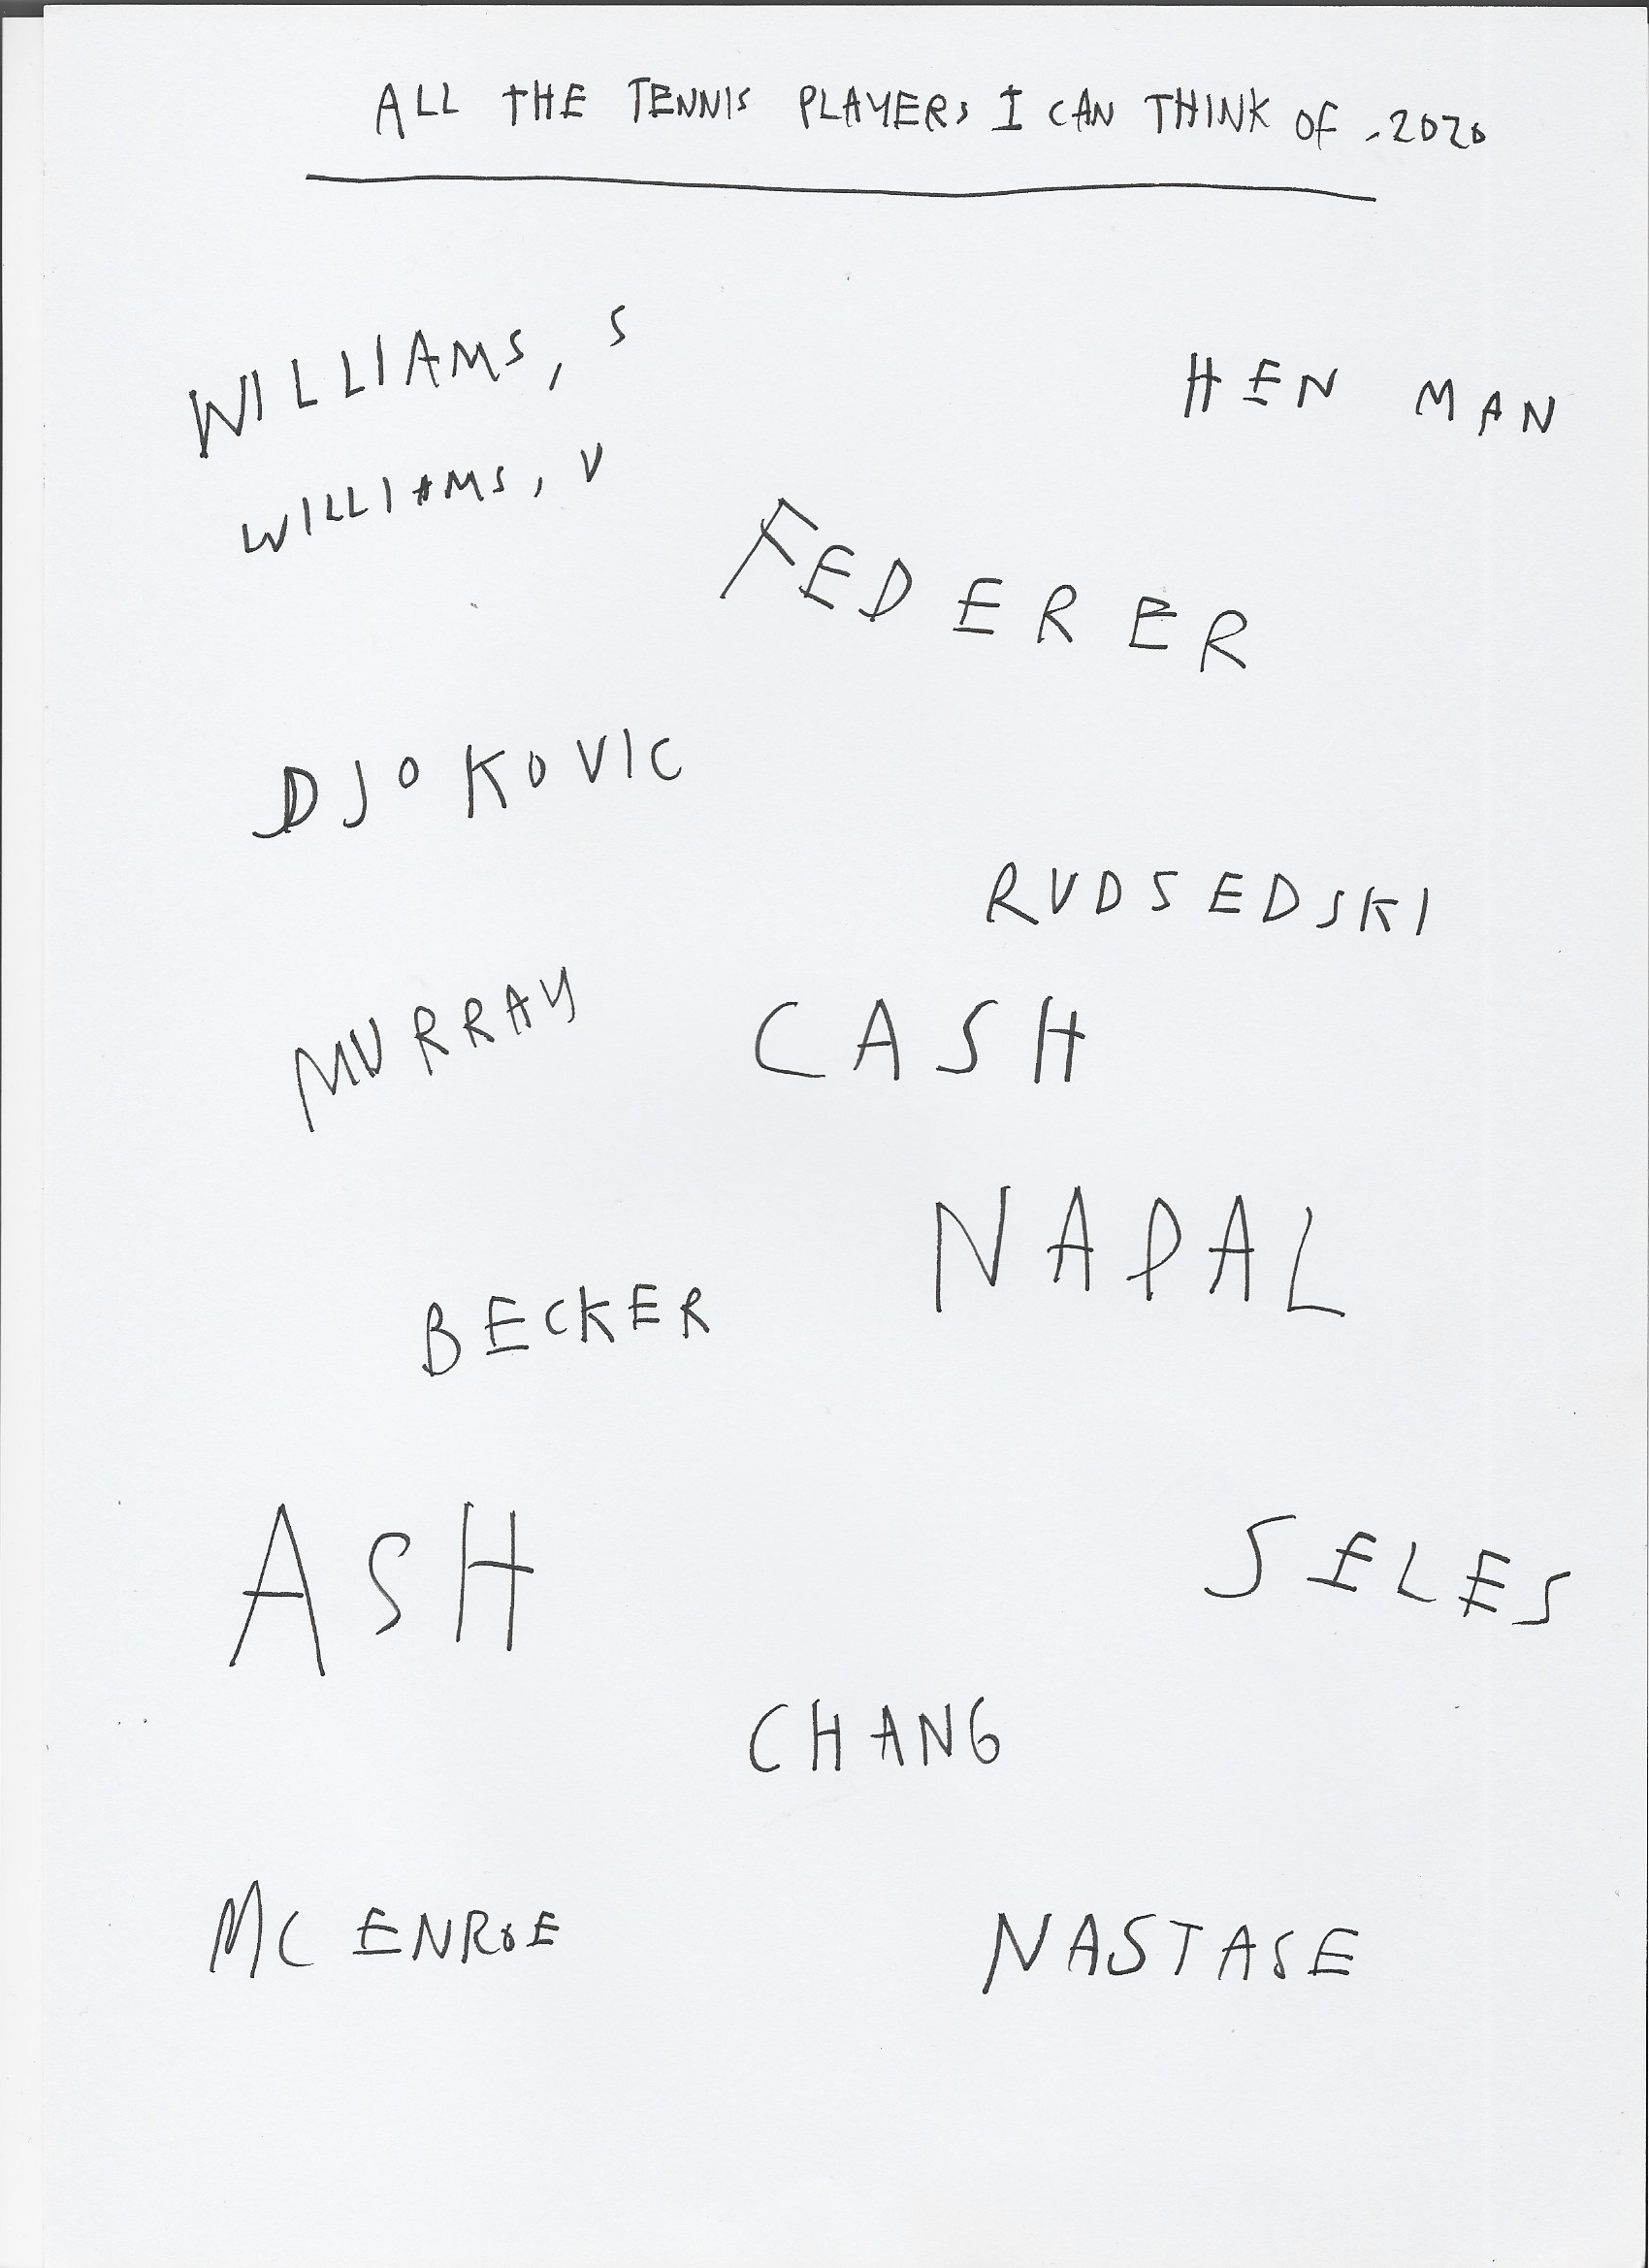 ALL THE TENNIS PLAYERS I CAN THINK OF - 2020
WILLIAMS, S
HEN MAN
WILLIAMS, V
FEDERER
DJOKOVIC
RUDSEDSKI
MURRAY
CASH
NADAL
BECKER
ASH
SELES
CHANG
MC ENROE
NASTASE